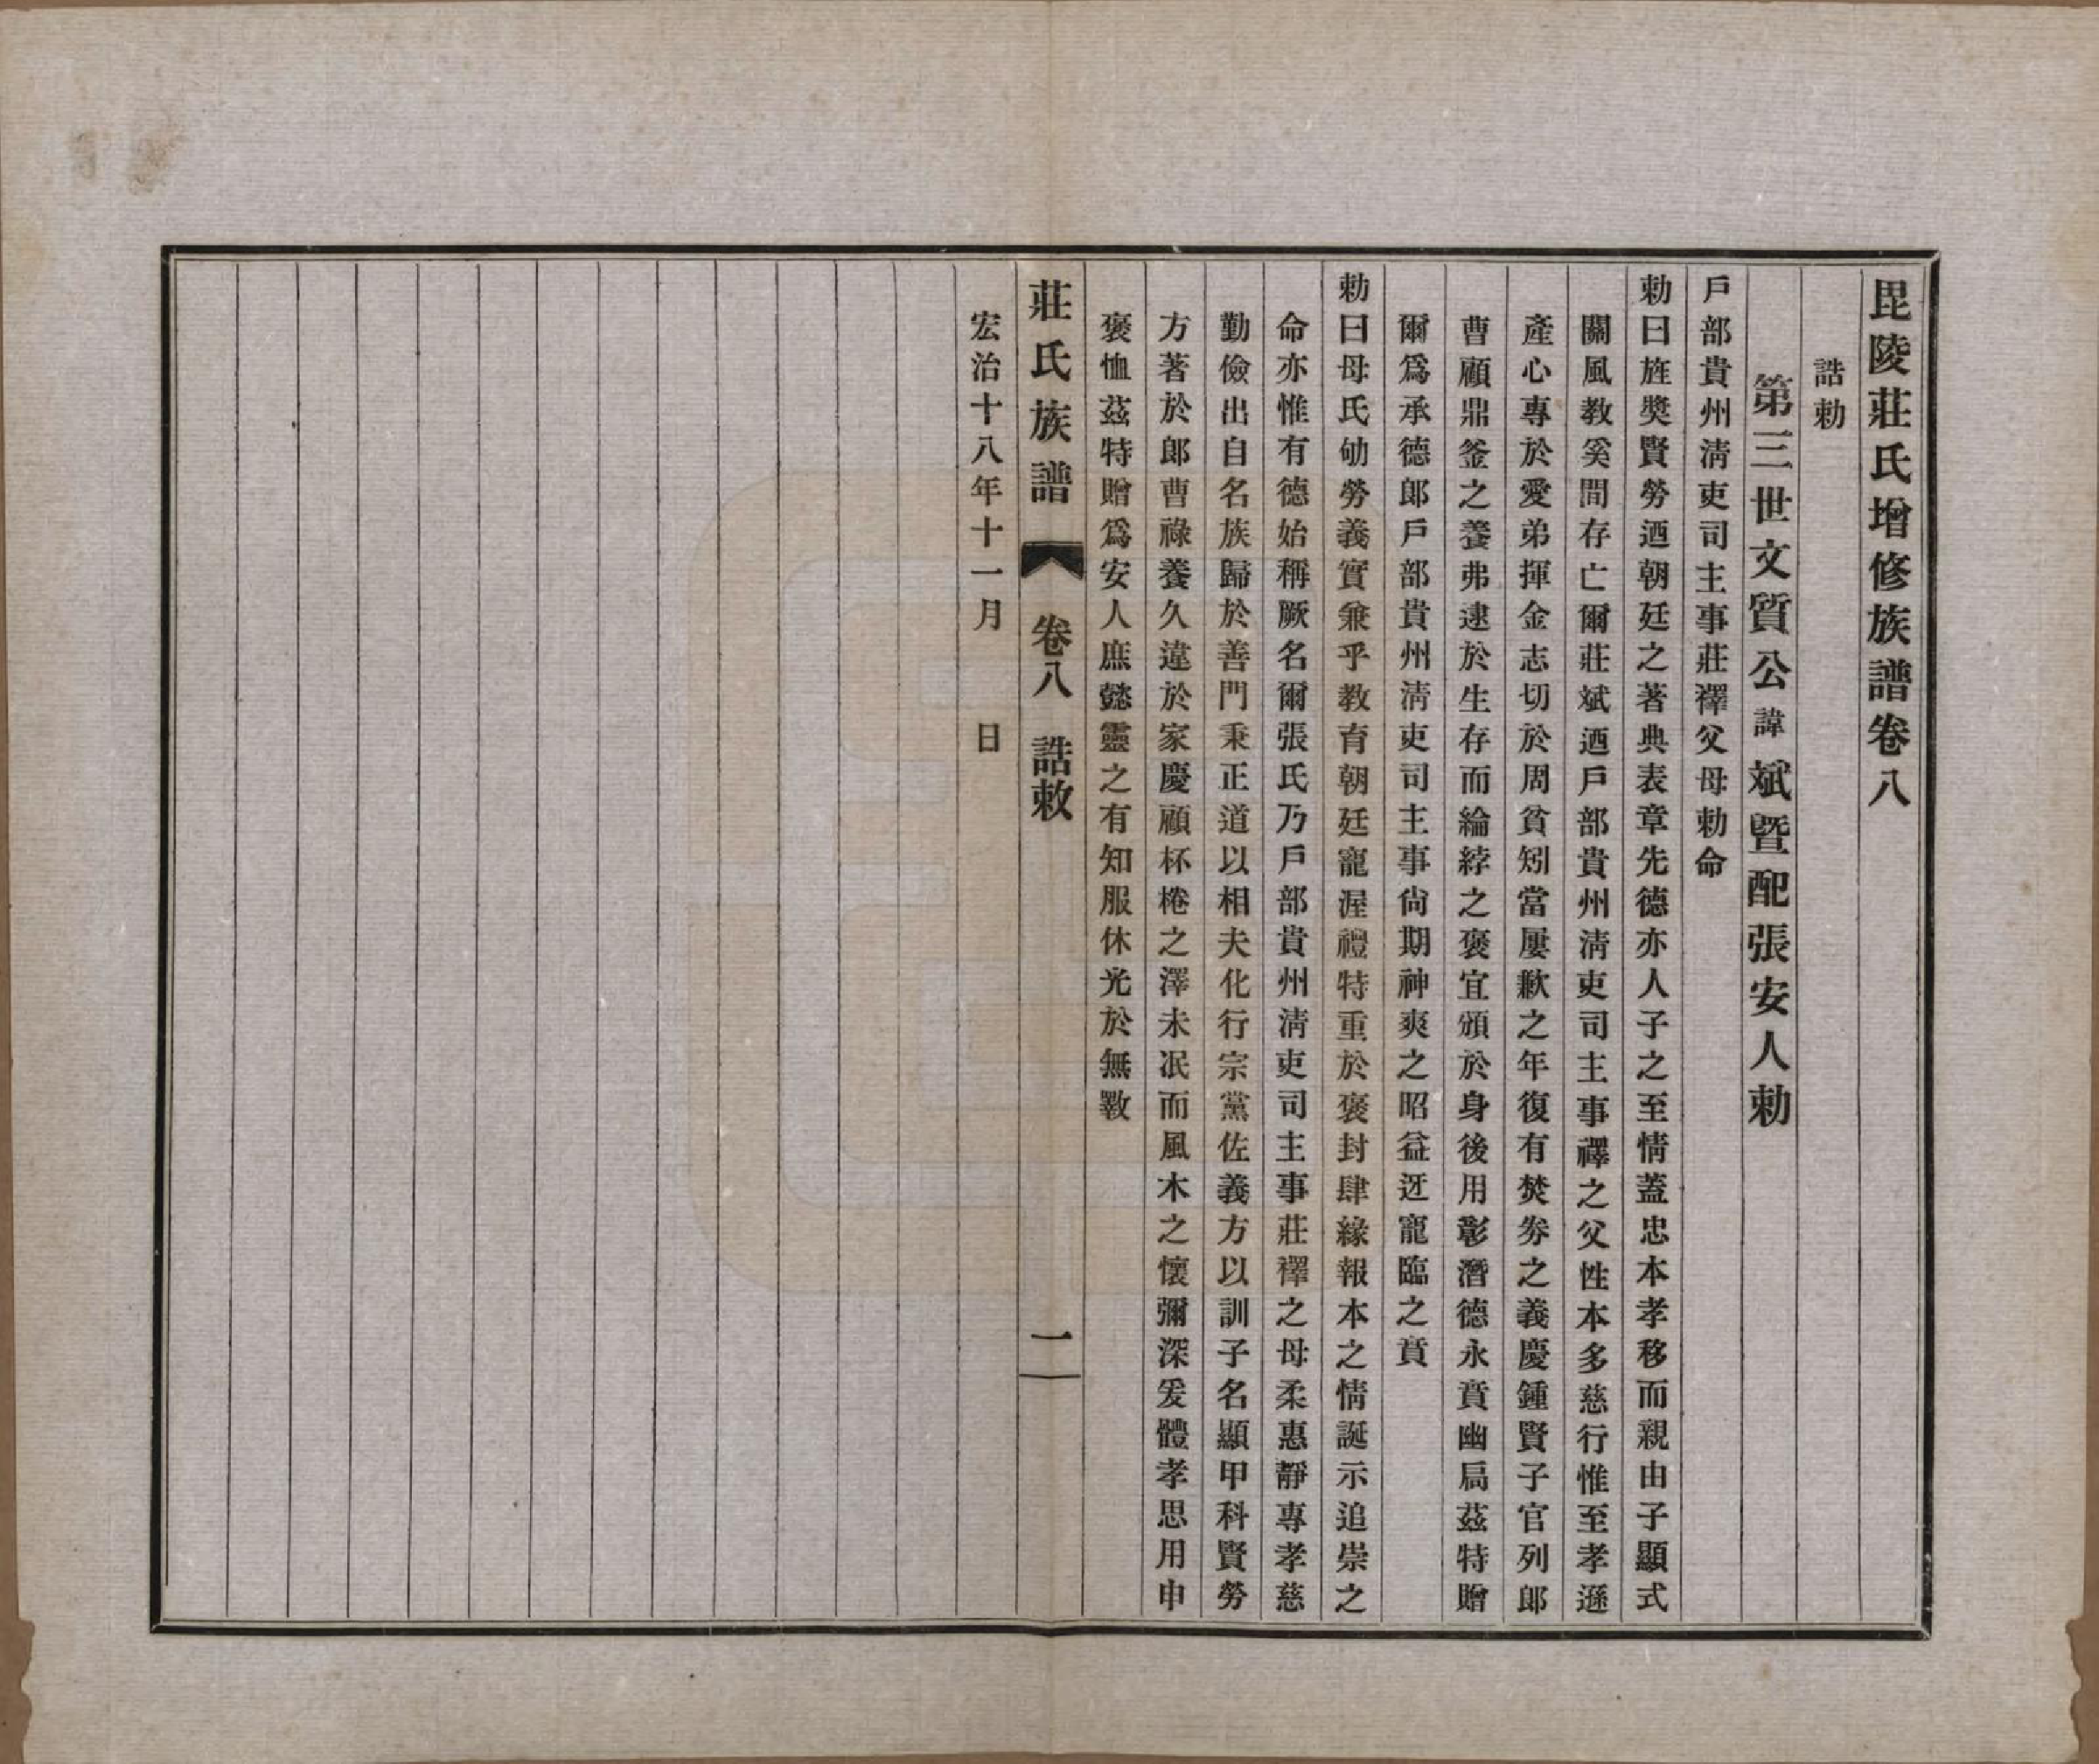 毘陵莊氏增修族譜卷八
誥勅
第三世文質公諱斌暨配張安人勅
戶部貴州淸吏司主事莊襗父母勅命
勅曰旌奬賢勞迺朝廷之著典表章先德亦人子之至情蓋忠本孝移而親由子顯式
關風敎奚間存亡爾莊斌迺戶部貴州淸吏司主事襗之父性本多慈行惟至孝遜
產心專於愛弟揮金志切於周貧矧當屢歉之年復有焚劵之義慶鍾賢子官列郞
曹顧鼎釜之養弗逮於生存而綸綍之褒宜頒於身後用彰潛德永賁幽扃茲特贈
爾爲承德郞戶部貴州淸吏司主事尙期神爽之昭益迓寵臨之賁
勅曰母氏劬勞義實兼乎敎育朝廷寵渥禮特重於褒封肆緣報本之情誕示追崇之
命亦惟有德始稱厥名爾張氏乃戶部貴州淸吏司主事莊襗之母柔惠靜專孝慈
勤儉出自名族歸於善門秉正道以相夫化行宗黨佐義方以訓子名顯甲科賢勞
方著於郞曹祿養久違於家慶顧杯棬之澤未泯而風木之懷彌深爰體孝思用申
褒恤茲特贈爲安人庶懿靈之有知服休光於無斁
宏治十八年十一月　　日
莊氏族譜　卷八　誥敕　一